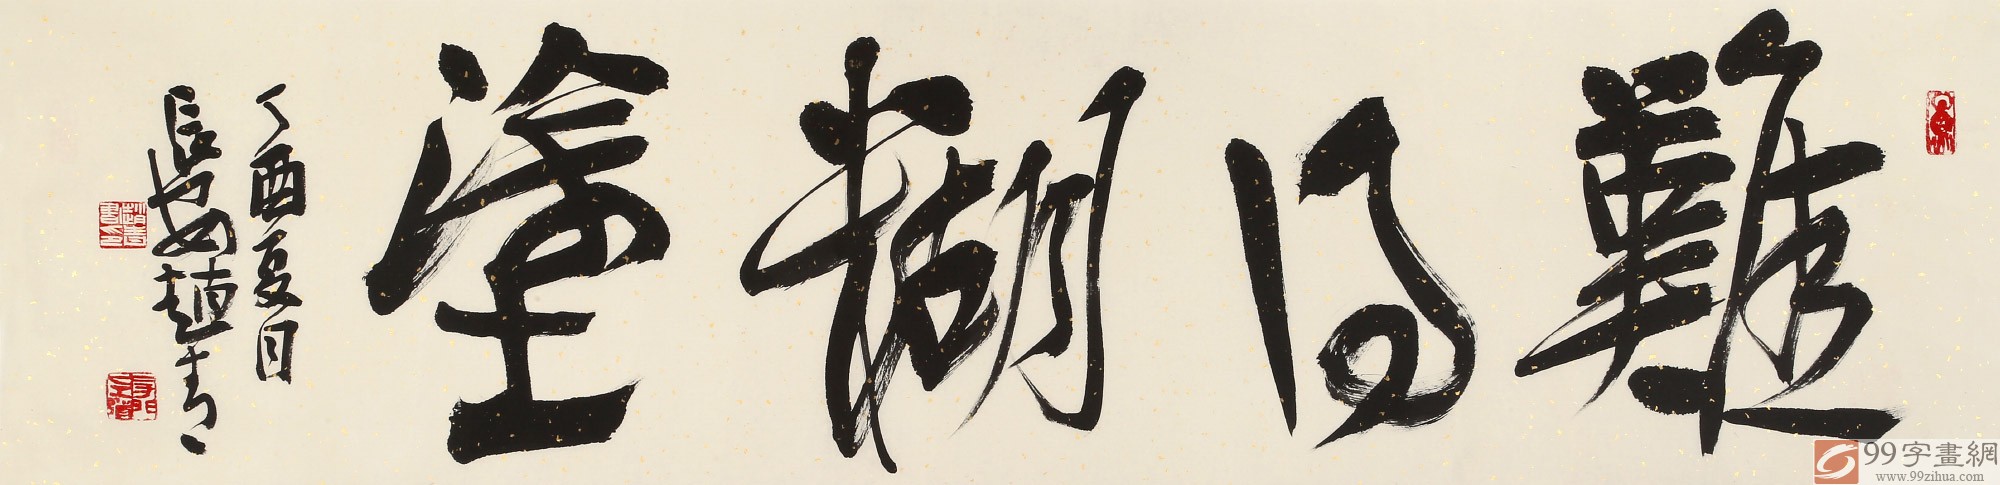 難得糊塗
丁酉夏月
長安趙青
99字畫網
www.99zihua.com